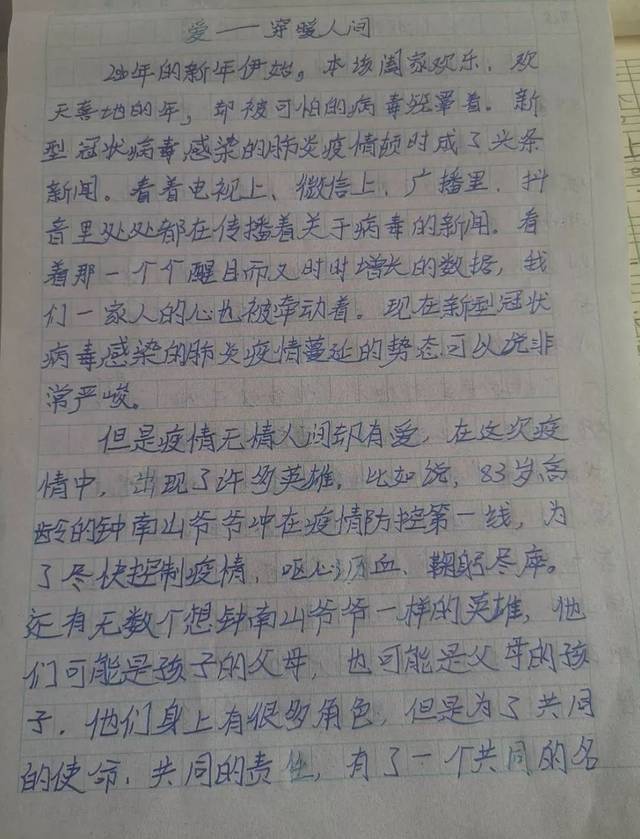 爱——穿暖人间
年的新年伊始。本该阖家欢乐、欢
天喜地的年,却被可怕的病毒笼罩着。新
型冠状病毒感染的肺炎疫情顿时成了头条
新闻。看着电视上、微信上、广播里、抖
音里处处都在传播着关于病毒的新闻。看
着那一个个醒目而又时时增长的数据,我
们一家人的心也被牵动着。现在新型冠状
病毒感染的肺炎疫情蔓延的势态可以说非
常严峻。
但是疫情无情人间却有爱,在这次疫
情中,出现了许多英雄,比如说,83岁高
龄的钟南山爷爷冲在疫情防控第一线,为
了尽快控制疫情,呕心沥血、鞠躬尽瘁。
还有无数个想钟南山爷爷一样的英雄,他
们可能是孩子的父母,也可能是父母的孩
子,他们身上有很多角色,但是为了共同
的使命,共同的责任,有了一个共同的名